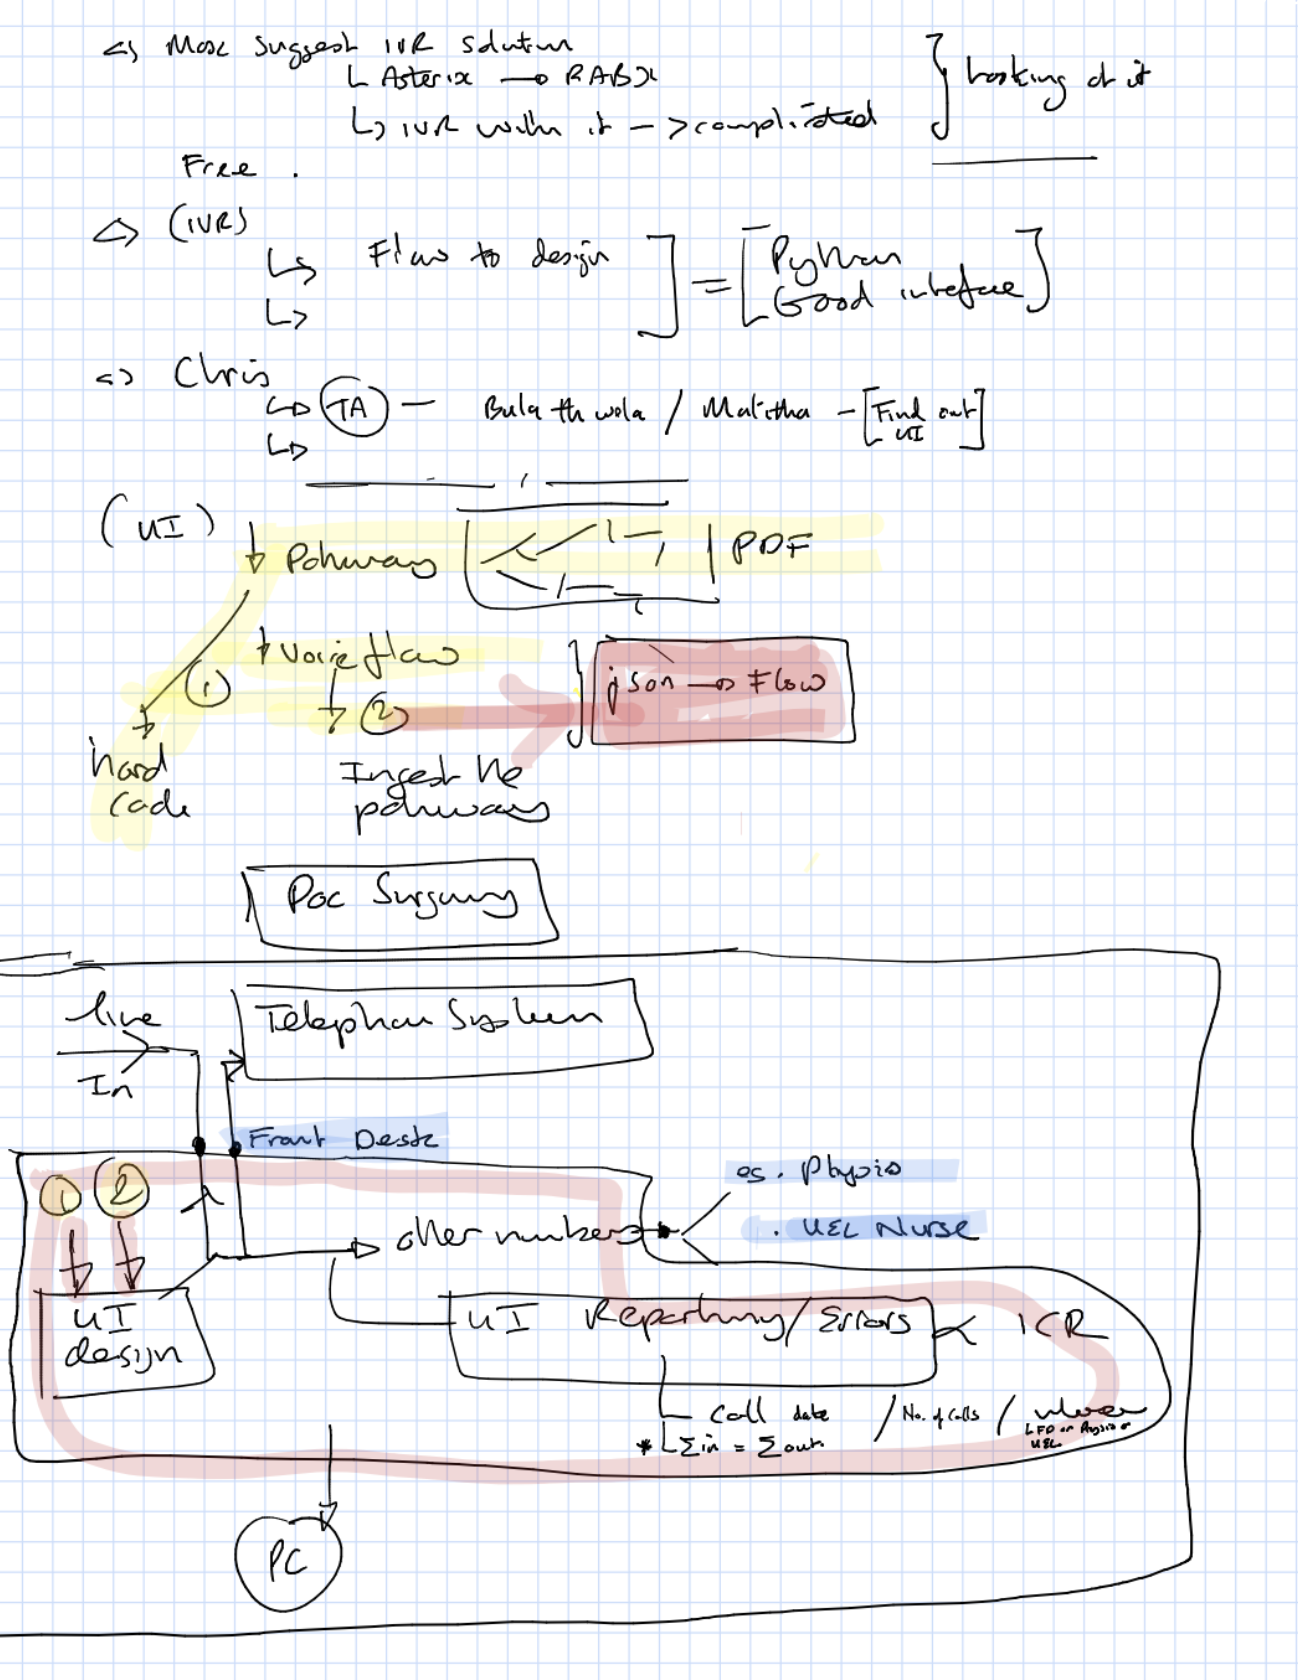 suggest IVR solution
Asterix → PABX
IVR with it -> complicated
looking at it
Free .
(IVR)
Flow to design
Python
Good interface
=
Chris
TA - Bulathwola / Malitha - [Find out
UI]
(UI)
Pathway
PDF
Voiceflow
1
2
json → Flow
hard
code
Ingest the
pathways
Poc Surgery
line
In
Telephone System
Front Desk
1 2
eg. Physio
. UEC Nurse
other numbers
UI
design
UI Reporting/Errors
ICR
Call date / No. of calls / where
FD or Physio or
UEC
* Σin = Σout.
PC